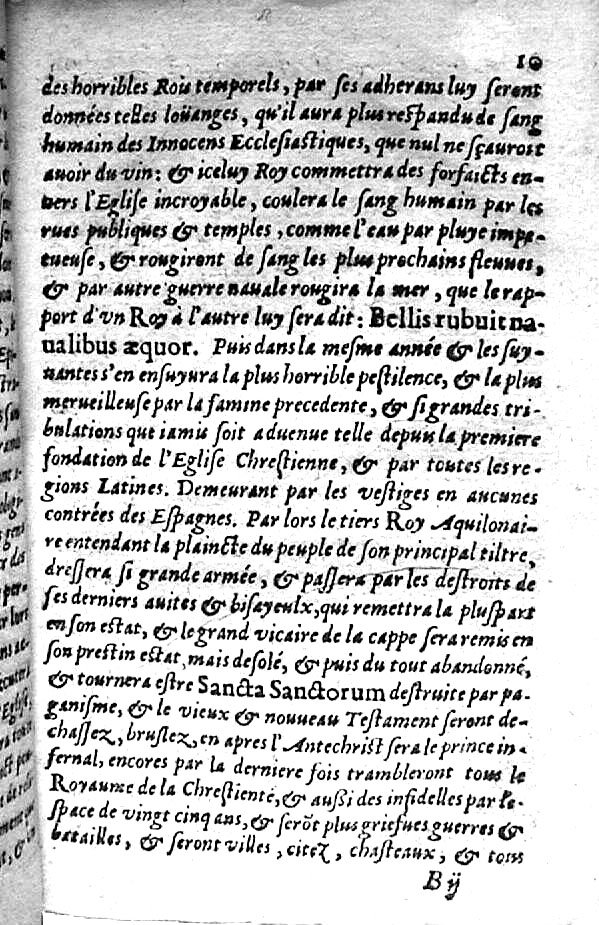 10
des horribles Rois temporels, par ses adherans luy seront
données telles loüanges, qu'il aura plus respandu de sang
humain des Innocens Ecclesiastiques, que nul ne sçaurost
auoir du vin: & iceluy Roy commettra des forfaicts en-
vers l'Eglise incroyable, coulera le sang humain par les
rues publiques & temples, comme l'eau par pluye impe-
tueuse, & rougiront de sang les plus prochains fleuues,
& par autre guerre nauale rougira la mer, que le rap-
port d'vn Roy à l'autre luy sera dit: Bellis rubuit na-
ualibus æquor. Puis dans la mesme année & les suy-
uantes s'en ensuyura la plus horrible pestilence, & la plus
merueilleuse par la famine precedente, & si grandes tri-
bulations que iamis soit aduenue telle depuis la premiere
fondation de l'Eglise Chrestienne, & par toutes les re-
gions Latines. Demeurant par les vestiges en aucunes
contrées des Espagnes. Par lors le tiers Roy Aquilonai-
re entendant la plaincte du peuple de son principal tiltre,
dressera si grande armée, & passera par les destroits de
ses derniers auites & bisayeulx, qui remettra la pluspart
en son estat, & le grand vicaire de la cappe sera remis en
son prestin estat, mais desolé, & puis du tout abandonné,
& tournera estre Sancta Sanctorum destruite par pa-
ganisme, & le vieux & nouueau Testament seront de-
chassez, bruslez, en apres l'Antechrist sera le prince in-
fernal, encores par la derniere fois trambleront tous le
Royaume de la Chrestienté, & außi des infidelles par l'e-
space de vingt cinq ans, & serõt plus griefues guerres &
batailles, & seront villes, citez, chasteaux, & tous
B ij